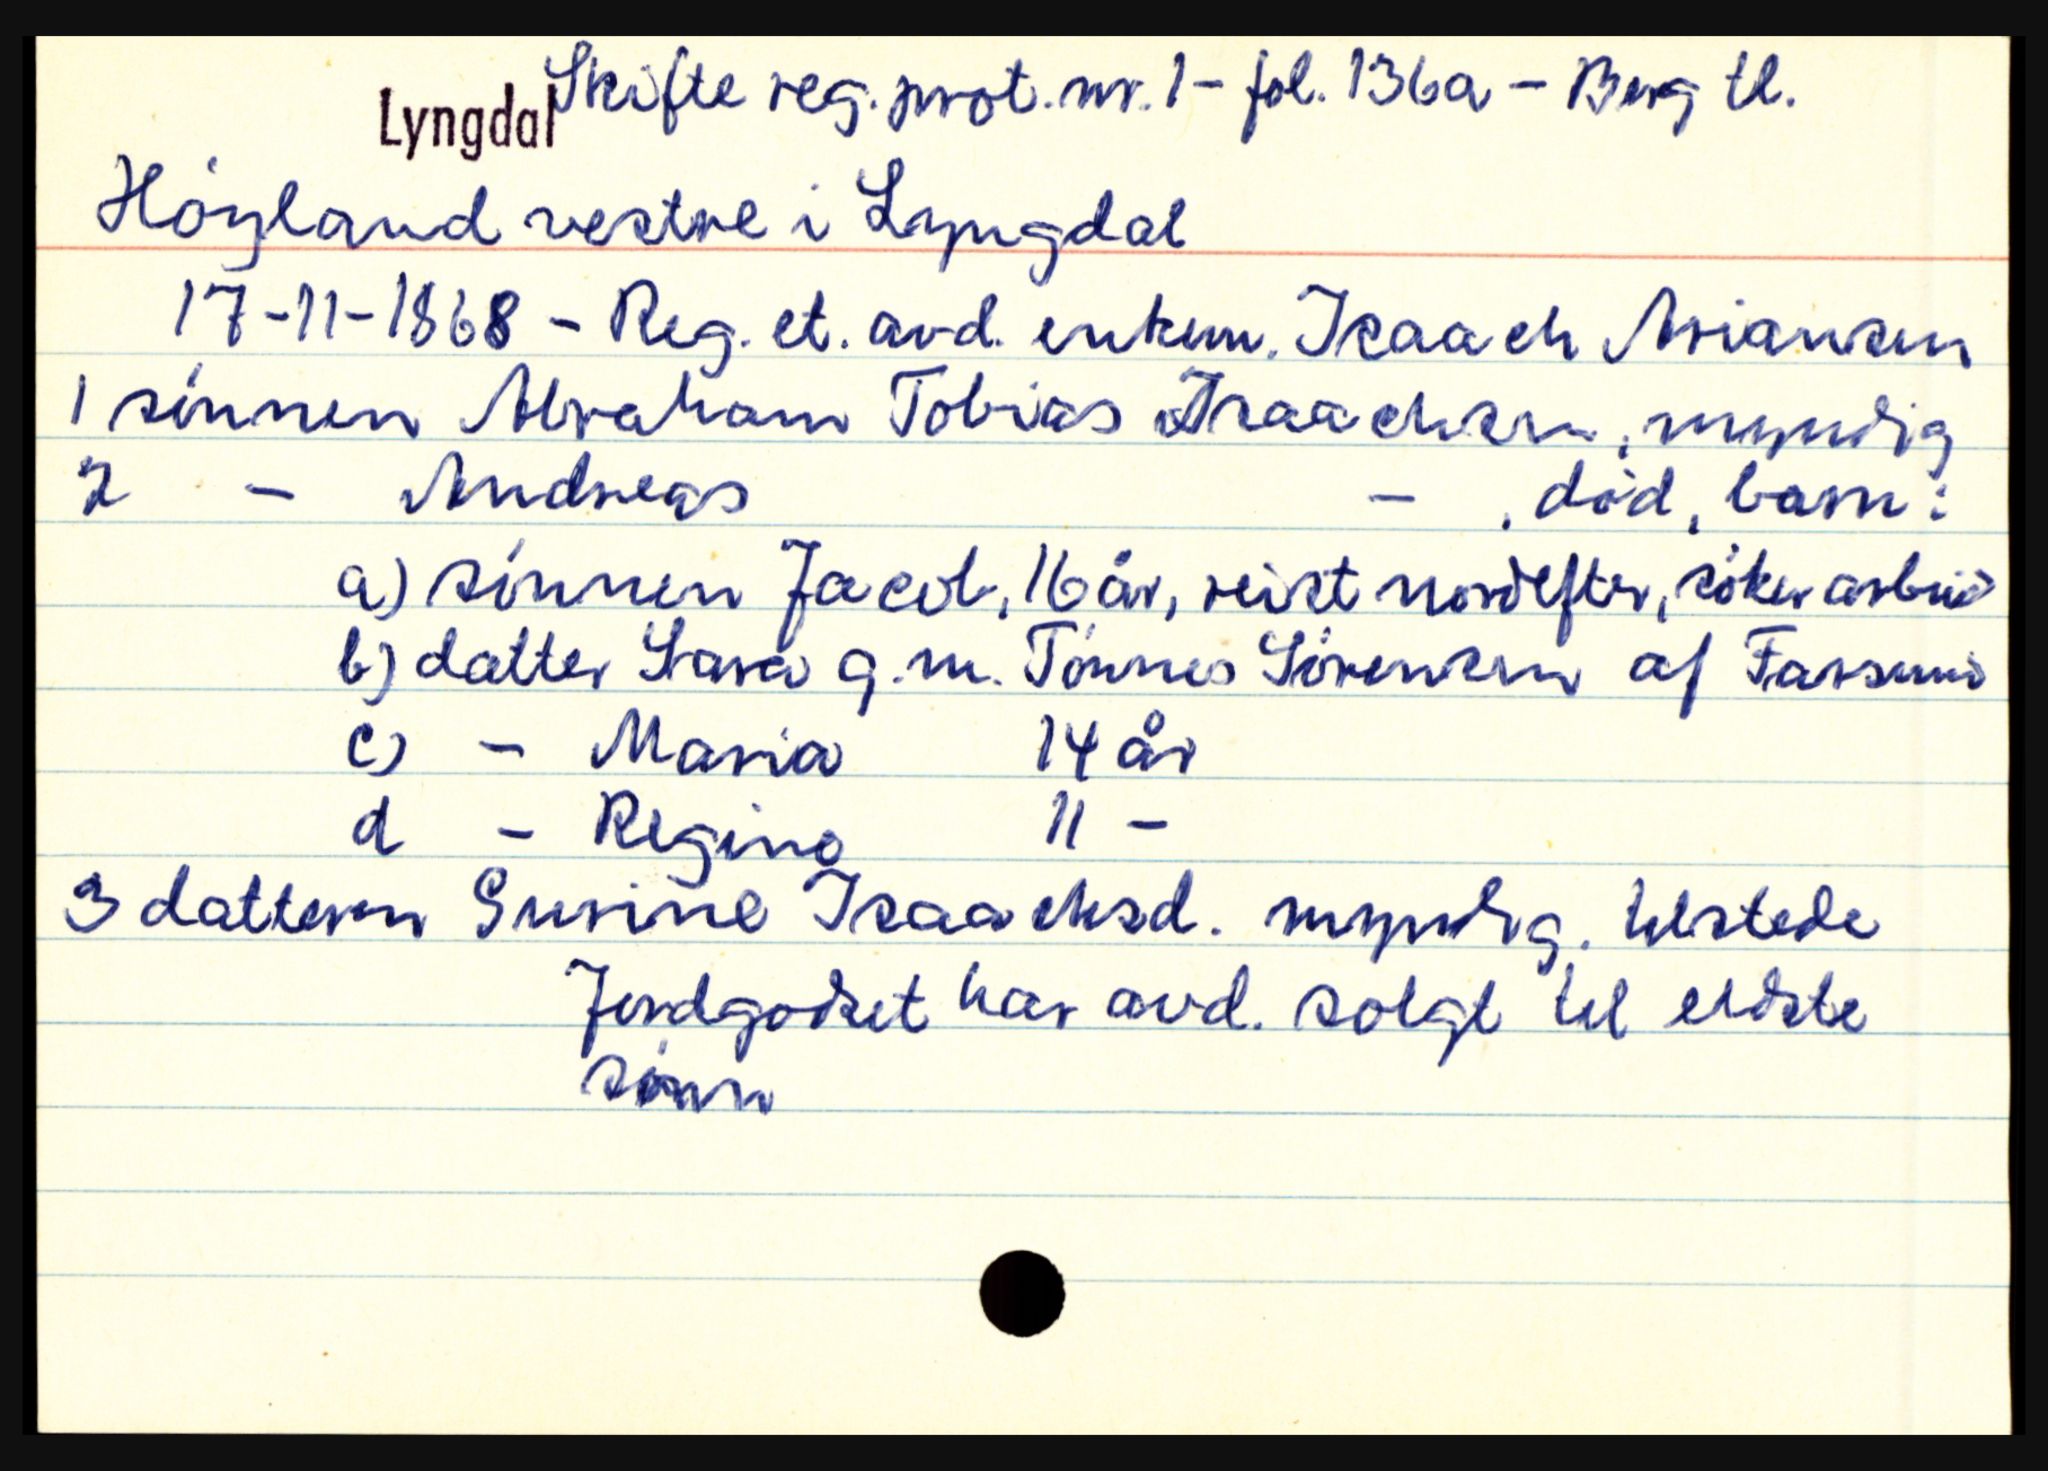 Lyngdal Skifte reg. prot. nr. 1 - fol. 136a - Berg tl.
Höyland vestre i Lyngdal
17-11-1868 - Reg. et. avd. enkem. Isaach Ariansen
1 sönnen Abraham Tobias Isaachsen, myndig
2 - Andreas - , död, barn:
a) sönnen Jacob, 16 år, reist nordefter, söker arbeid
b) datter Sara g.m. Tönnes Sörensen af Farsund
c) - Maria 14 år
d - Regine 11 -
3 datteren Gurine Isaachsd. myndig. tilstede
Jordgodset har avd. solgt til eldste
sönn